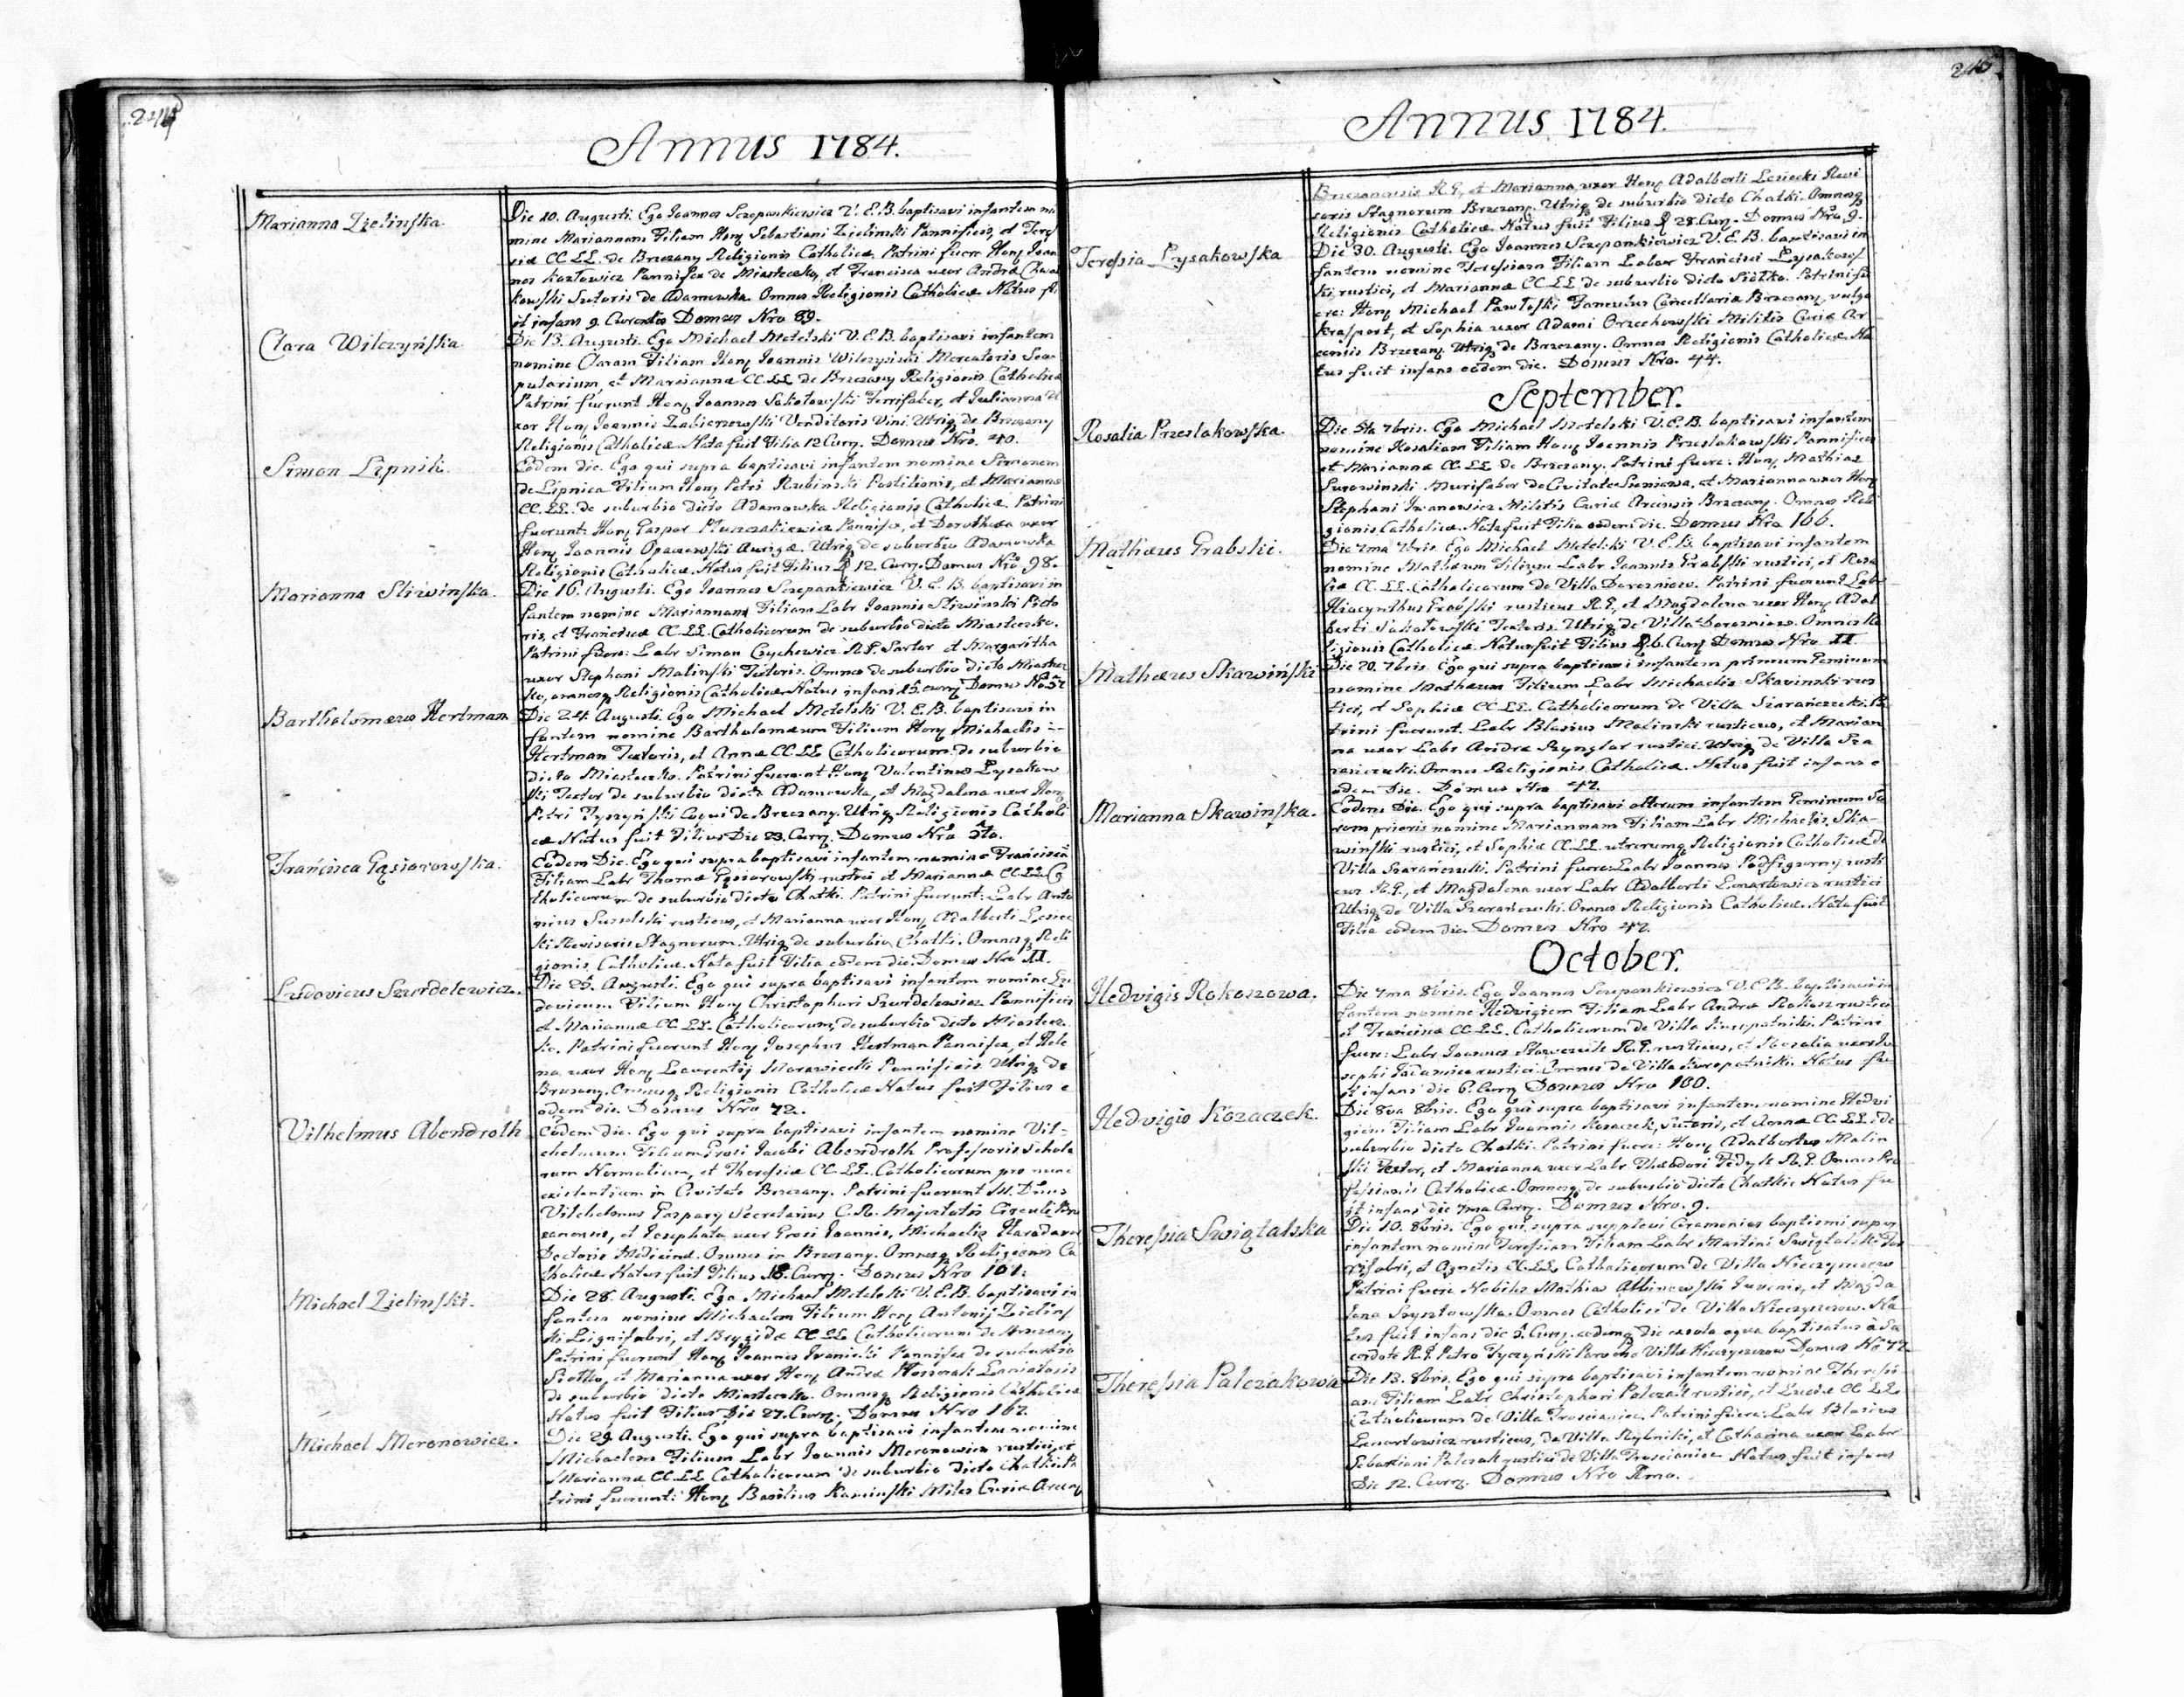 244
Annus 1784.
Marianna Zielinska.
Die 10. Augusti. Ego Joannes Szczepankiewicz V. E. B. baptisavi infantem no
mine Mariannam Filiam Hon Sebastiani Zielinski Pannificis, et There
siæ CC. LL. de Brzezany Religionis Catholicæ. Patrini fuere Hon Joan
nes Kozłowicz Pannifex de Miasteczko, et Francisca uxor Andreæ
kowski Sutoris de Adamowka. Omnes Religionis Catholicæ Natus fu
it infans 9. Currentis Domus Nro 89.
Clara Wilczyńska.
Die 13. Augusti. Ego Michael Motelski V. E. B. baptisavi infantem
nomine Claram Filiam Hon Joannis Wilczynski Mercatoris Sca
pularium, et Mariannæ CC LL de Brzezany Religionis Catholicæ
Patrini fuerunt Hon Joannes Sokołowski Ferrifaber, et Julianna U
xor Hon Joannis Venditoris Vini. Utriq de Brzezany
Religionis Catholicæ. Nata fuit Filia 12 Curr. Domus Nro. 40.
Simon Lipnik.
Eodem die. Ego qui supra baptisavi infantem nomine Simonem
de Lipnica Filium Hon Petri Rubinski Postilionis, et Mariannæ
CC. LL. de suburbio dicto Adamowka Religionis Catholicæ Patrini
fuerunt Hon Gaspar Pannifex, et Dorothea uxor
Hon Joannis Aurigæ. Utriq de suburbio Adamowka
Religionis Catholicæ. Natus fuit Filius D 12. Curr. Domus Nro 98.
Marianna Sliwinska.
Die 16. Augusti. Ego Joannes Szczepankiewicz V. E. B. baptisavi in
fantem nomine Mariannam Filiam Labr Joannis Sliwinski Picto
ris, et Franciscæ CC. LL. Catholicorum de suburbio dicto Miasteczko.
Patrini fuere: Labr Simon R. G. Sartor et Margaritha
uxor Stephani Malinski Textoris. Omnes de suburbio dicto Miastecz
ko, omnesq Religionis Catholicæ Natus infans 15. curr Domus Nro 52
Bartholomæus Hertman
Die 24. Augusti. Ego Michael Motelski V. E. B. baptisavi in
fantem nomine Bartholomæum Filium Hon Michaelis
Hertman Textoris, et Annæ CC LL Catholicorum de suburbio
dicto Miasteczko. Patrini fuerunt Hon Valentinus Lysakow
ski Textor de suburbio dicto Adamowka, et Magdalena uxor Hon
Petri Tyszyński Coqui de Brzezany. Utriq Religionis Catholi
cæ Natus fuit Filius Die 23. Curr. Domus Nro 5to.
Francisca Gąsiorowska.
Eodem Die. Ego qui supra baptisavi infantem nomine Franciscā
Filiam Labr Thomæ Gąsiorowski rustici et Mariannæ CC LL Ca
tholicorum de suburbio dicto Chatki. Patrini fuerunt: Labr Anto
nius rusticus, et Marianna uxor Hon Adalberti Lesiec
ki Revisoris Stagnorum. Utriq de suburbio Chatki. Omnesq Reli
gionis Catholicæ. Nata fuit Filia eodem die. Domus Nro II.
Ludovicus Szwrdelewicz.
Die 25. Augusti. Ego qui supra baptisavi infantem nomine Lu
dovicum Filium Hon Christophori Szwrdelewicz Pannificis
et Mariannæ CC LL. Catholicorum, de suburbio dicto Miastecz
ko. Patrini fuerunt Hon Josephus Hertman Pannifex, et Hele
na uxor Hon Laurentij Morawiecki Pannificis. Utriq de
Brzezany. Omnesq Religionis Catholicæ Natus fuit Filius e
odem die. Domus Nro 72.
Vilhelmus Abendroth
Eodem die. Ego qui supra baptisavi infantem nomine Vil-
chelmum Filium Grosi Jacobi Abendroth Professoris Schola
rum Normalium, et Theresiæ CC. LL. Catholicorum pro nunc
existentium in Civitate Brzezany. Patrini fuerunt Ill. Dnus
Vilchelmus Gaspary Secretarius C. R. Majestatis Circuli Brze
zanensis, et Josephata uxor Grosi Joannis, Michaelis
Doctoris Medicinæ. Omnes in Brzezany. Omnesq Religionis Ca
tholicæ Natus fuit Filius 18. Curr. Domus Nro 101.
Michael Zielinski.
Die 28. Augusti. Ego Michael Motelski V. E. B. baptisavi in
fantem nomine Michaelem Filium Hon Antonij Zielins
ki Lignifabri, et Brygidæ CC. LL. Catholicorum de Brzezany
Patrini fuerunt Hon Joannes Iwanicki Pannifex de suburbio
Siołko, et Marianna uxor Hon Andreæ Laniatoris
de suburbio dicto Miasteczko. Omnesq Religionis Catholicæ
Natus fuit Filius Die 27. Curr. Domus Nro 162.
Michael Meronowicz.
Die 29. Augusti. Ego qui supra baptisavi infantem nomine
Michaelem Filium Labr Joannis Meronowicz rustici, et
Mariannæ CC LL Catholicorum de suburbio dicto Chatki. Pa
trini fuerunt: Hon Basilius Kaminski Miles Curiæ Arcen
245.
Annus 1784.
Brzezanensis R. G., et Marianna uxor Hon Adalberti Lesiecki Revi
soris Stagnorum Brzezan. Utriq de suburbio dicto Chatki. Omnesq
Religionis Catholicæ. Natus fuit Filius D 28. Curr. Domus Nro 9.
Teressia Lysakowska
Die 30. Augusti. Ego Joannes Szczepankiewicz V. E. B. baptisavi in
fantem nomine Teressiam Filiam Labor Francisci Lysakows
ki rustici, et Mariannæ CC. LL de suburbio dicto Siołko. Patrini fu
ere: Hon Michael Pawłoski Famulus Cancellariæ Brzezan vulgo
Krasport, et Sophia uxor Adami Orzechowski Militis Curiæ Ar
censis Brzezan. Utriq de Brzezany. Omnes Religionis Catholicæ. Na
tus fuit infans eodem die. Domus Nro. 44.
September.
Rosalia Przeslakowska.
Die 5ta 7bris. Ego Michael Motelski V. E. B. baptisavi infantem
nomine Rosaliam Filiam Hon Joannis Przeslakowski Pannificis
et Mariannæ CC. LL de Brzezany. Patrini fuere: Hon Mathias
Surowinski Murifaber de Civitate Sieniawa, et Marianna uxor Hon
Stephani Iwanowicz Militis Curiæ Arcensis Brzezan. Omnes Reli
gionis Catholicæ. Nata fuit Filia eodem die. Domus Nro 166.
Mathæus Grabski.
Die 7ma 7bris. Ego Michael Motelski V. E. B. baptisavi infantem
nomine Mathæum Filium Labr Joannis Grabski rustici, et Rosa
liæ CC. LL. Catholicorum de Villa Poruszniow. Patrini fuerunt Labr
Hiacynthus Grabski rusticus R. G., et Magdalena uxor Hon Adal
berti Sokołowski Textoris. Utriq de Villa. Omnes Re
ligionis Catholicæ. Natus fuit Filius D. 6. Curr Domus Nro II.
Mathæus Skawiński
Die 20. 7bris. Ego qui supra baptisavi infantem primum Geminum
nomine Mathæum Filium Labr Michaelis Skavinski rus
tici, et Sophiæ CC. LL. Catholicorum de Villa Szarańczuki. Pa
trini fuerunt. Labr Blasius Malinski rusticus, et Marian
na uxor Labr Andreæ Szynglar rustici. Utriq de Villa Sza
rańczuki. Omnes Religionis Catholicæ. Natus fuit infans e
odem Die. Domus Nro 42.
Marianna Skawinska.
Eodem Die. Ego qui supra baptisavi alterum infantem Geminum So
rorem prioris nomine Mariannam Filiam Labr Michaelis Ska-
winski rustici, et Sophiæ CC. LL. utrorumq Religionis Catholicæ de
Villa Szarańczuki. Patrini fuere: Labr Joannes Podfigurny rusti
cus R. G., et Magdalena uxor Labr Adalberti Lenartowicz rustici
Utriq de Villa Szarańczuki. Omnes Religionis Catholicæ. Nata fuit
Filia eodem die. Domus Nro 42.
October.
Hedvigis Rokoszowa.
Die 7ma 8bris. Ego Joannes Szczepankiewicz V. E. B. baptisavi in
fantem nomine Hedvigiem Filiam Labr Andreæ Rokosz rustici
et Franciscæ CC. LL. Catholicorum de Villa Kuropatniki. Patrini
fuere: Labr Joannes R. G. rusticus, et Rosalia uxor Jo
sephi rustici. Omnes de Villa Kuropatniki. Natus fu
it infans die 6. Curr Domus Nro 100.
Hedvigis Kozaczek.
Die 8va 8bris. Ego qui supra baptisavi infantem nomine Hedvi
giem Filiam Labr Joannis Kozaczek, Sutoris, et Annæ CC. LL. de
suburbio dicto Chatki. Patrini fuere: Hon Adalbertus Malin
ski Textor, et Marianna uxor Labr Theodori Fedyk R. G. Omnes Pro
fessionis Catholicæ. Omnesq de suburbio dicto Chatki. Natus fu
it infans die 7ma Curr. Domus Nro. 9.
Theressia Swiątalska
Die 10. 8bris. Ego qui supra supplevi Ceremonias baptismi super
infantem nomine Teressiam Filiam Labr Martini Swiątalski Fer
rifabri, et Agnetis CC. LL. Catholicorum de Villa Hieczyszcow
Patrini fuere Nobilis Mathias Albinowski Juvenis, et Magda
lena Szysztowska. Omnes Catholici de Villa Hieczyszcow. Na
tus fuit infans die 5. Curr. eodemq die exsola aqua baptisatus à Sa
cerdote R. G. Petro Tyczyński Parocho Villæ Hieczyszcow Domus Nro 72
Theressia Palczakowa
Die 13. 8bris. Ego qui supra baptisavi infantem nomine Theressi
am Filiam Labr Christophori Palczak rustici, et Luciæ CC LL
Catholicorum de Villa Trościaniec. Patrini fuere: Labr Blasius
Lenartowicz rusticus, de Villa Rybniki, et Catharina uxor Labor
Sebastiani Palczak rustici de Villa Trościaniec. Natus fuit infans
Die 12. Curr. Domus Nro Imo.